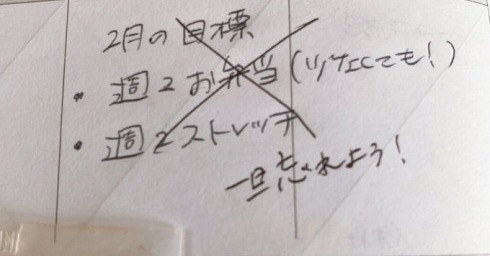 2月の目標
・週2お弁当(いつでも!)
・週2ストレッチ
一旦忘れよう!